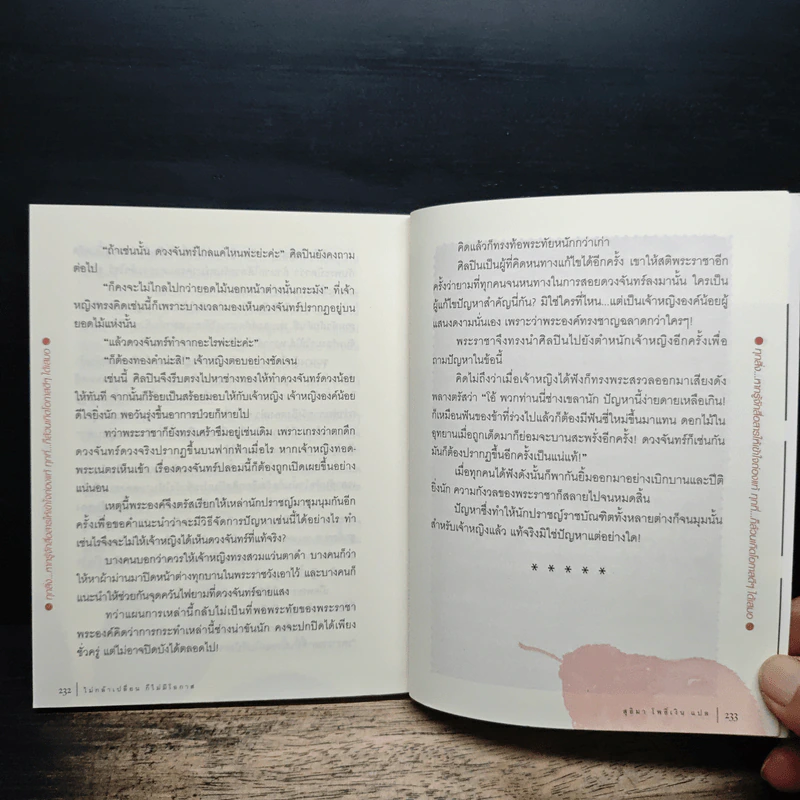 "ถ้าเช่นนั้น ดวงจันทร์ไกลแค่ไหนพ่ะย่ะค่ะ" ศิลปินยังคงถาม
ต่อไป
"ก็คงจะไม่ไกลไปกว่ายอดไม้นอกหน้าต่างนั้นกระมัง" ที่เจ้า
หญิงทรงคิดเช่นนี้ก็เพราะบางเวลามองเห็นดวงจันทร์ปรากฏอยู่บน
ยอดไม้แห่งนั้น
"แล้วดวงจันทร์ทำจากอะไรพ่ะย่ะค่ะ"
"ก็ต้องทองคำน่ะสิ!" เจ้าหญิงตอบอย่างชัดเจน
เช่นนี้ ศิลปินจึงรีบตรงไปหาช่างทองให้ทำดวงจันทร์ดวงน้อย
ให้ทันที จากนั้นก็ร้อยเป็นสร้อยมอบให้กับเจ้าหญิง เจ้าหญิงองค์น้อย
ดีใจยิ่งนัก พอวันรุ่งขึ้นอาการป่วยก็หายไป
ทว่าพระราชาก็ยังทรงเศร้าซึมอยู่เช่นเดิม เพราะเกรงว่าตกดึก
ดวงจันทร์ดวงจริงปรากฏขึ้นบนฟากฟ้าเมื่อไร หากเจ้าหญิงทอด-
พระเนตรเห็นเข้า เรื่องดวงจันทร์ปลอมนี้ก็ต้องถูกเปิดเผยขึ้นอย่าง
แน่นอน
เหตุนี้พระองค์จึงตรัสเรียกให้เหล่านักปราชญ์มาชุมนุมกันอีก
ครั้งเพื่อขอคำแนะนำว่าจะมีวิธีจัดการปัญหาเช่นนี้ได้อย่างไร ทำ
เช่นไรจึงจะไม่ให้เจ้าหญิงได้เห็นดวงจันทร์ที่แท้จริง?
บางคนบอกว่าควรให้เจ้าหญิงทรงสวมแว่นตาดำ บางคนก็ว่า
ให้หาผ้าม่านมาปิดหน้าต่างทุกบานในพระราชวังเอาไว้ และบางคนก็
แนะนำให้ช่วยกันจุดควันไฟยามที่ดวงจันทร์ฉายแสง
ทว่าแผนการเหล่านี้กลับไม่เป็นที่พอพระทัยของพระราชา
พระองค์คิดว่าการกระทำเหล่านี้ช่างน่าขันนัก คงจะปกปิดได้เพียง
ชั่วครู่ แต่ไม่อาจปิดบังได้ตลอดไป!
232 | ไม่กล้าเปลี่ยน ก็ไม่มีโอกาส
คิดแล้วก็ทรงท้อพระทัยหนักกว่าเก่า
ศิลปินเป็นผู้ที่คิดหนทางแก้ไขได้อีกครั้ง เขาให้สติพระราชาอีก
ครั้งว่ายามที่ทุกคนจนหนทางในการสอยดวงจันทร์ลงมานั้น ใครเป็น
ผู้แก้ไขปัญหาสำคัญนี่กัน? มิใช่ใครที่ไหน...แต่เป็นเจ้าหญิงองค์น้อยผู้
แสนงดงามนั่นเอง เพราะว่าพระองค์ทรงชาญฉลาดกว่าใครๆ!
พระราชาจึงทรงนำศิลปินไปยังตำหนักเจ้าหญิงอีกครั้งเพื่อ
ถามปัญหาในข้อนี้
คิดไม่ถึงว่าเมื่อเจ้าหญิงได้ฟังก็ทรงพระสรวลออกมาเสียงดัง
พลางตรัสว่า "โอ๊ พวกท่านนี่ช่างเขลานัก ปัญหานี้ง่ายดายเหลือเกิน!
ก็เหมือนฟันของข้าที่ร่วงไปแล้วก็ต้องมีฟันซี่ใหม่ขึ้นมาแทน ดอกไม้ใน
อุทยานเมื่อถูกเด็ดมาก็ย่อมจะบานสะพรั่งอีกครั้ง! ดวงจันทร์ก็เช่นกัน
มันก็ต้องปรากฏขึ้นอีกครั้งเป็นแน่แท้!"
เมื่อทุกคนได้ฟังดังนั้นก็พากันยิ้มออกมาอย่างเบิกบานและปีติ
ยิ่งนัก ความกังวลของพระราชาก็สลายไปจนหมดสิ้น
ปัญหาซึ่งทำให้นักปราชญ์ราชบัณฑิตทั้งหลายต่างก็จนมุมนั้น
สำหรับเจ้าหญิงแล้ว แท้จริงมิใช่ปัญหาแต่อย่างใด!
* * * * *
สุธิมา โพธิ์เงิน แปล | 233